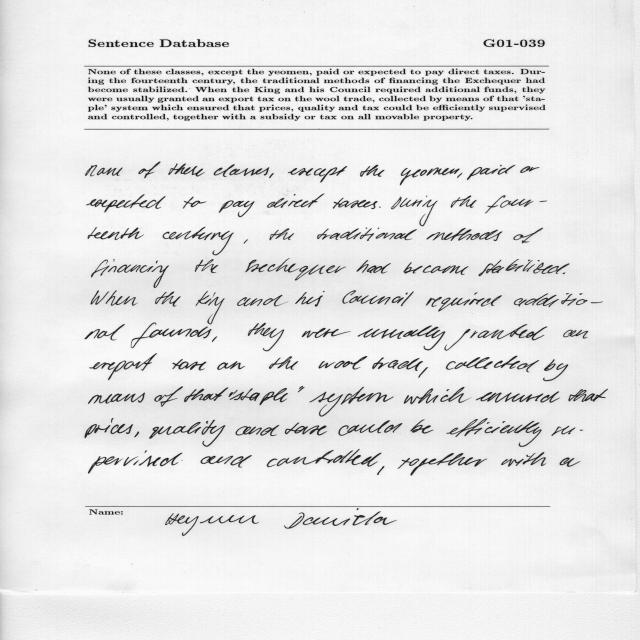 Sentence Database G01-039
None of these classes, except the yeomen, paid or expected to pay direct taxes. Dur-
ing the fourteenth century, the traditional methods of financing the Exchequer had
become stabilized. When the King and his Council required additional funds, they
were usually granted an export tax on the wool trade, collected by means of that 'sta-
ple' system which ensured that prices, quality and tax could be efficiently supervised
and controlled, together with a subsidy or tax on all movable property.
None of these classes, except the yeomen, paid or
expected to pay direct taxes. During the four-
teenth century, the traditional methods of
financing the Exchequer had become stabilized.
When the King and his Council required additio-
nal founds, they were usually granted an
export taxe on the wool trade, collected by
means of that "staple" system which ensured that
prices, quality and taxe could be efficiently su-
pervised and controlled, together with a
Name: Daniela